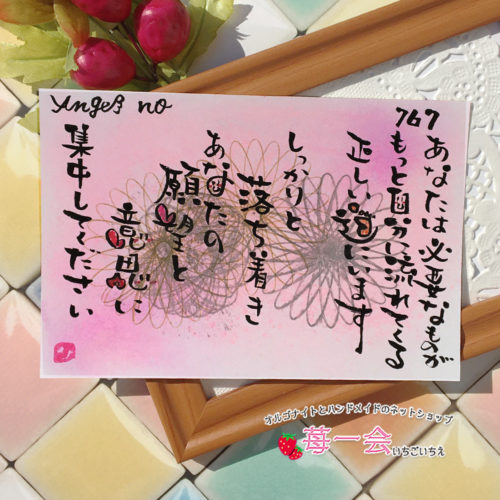 Angel no
767
あなたは必要なものが
もっと自分に流れてくる
正しい道にいます
しっかりと
落ち着き
あなたの
願望と
意思に
集中してください
オルゴナイトとハンドメイドのネットショップ
苺一会 いちごいちえ